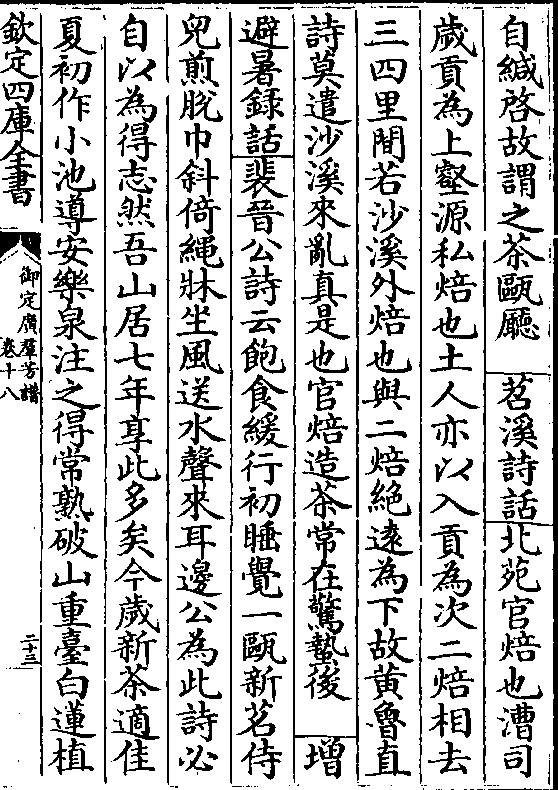 自緘啓故謂之茶甌廳　苕溪詩話北苑官焙也漕司
歲貢為上壑源私焙也土人亦以入貢為次二焙相去
三四里間若沙溪外焙也與二焙絶逺為下故黄魯直
詩莫遣沙溪來亂真是也官焙造茶常在驚蟄後　增
避暑録話裴晉公詩云飽食緩行初睡覺一甌新茗侍
兒煎脫巾斜倚繩牀坐風送水聲來耳邊公為此詩必
自以為得志然吾山居七年享此多矣今歲新茶適佳
夏初作小池導安樂泉注之得常熟破山重臺白蓮植
欽定四庫全書
御定廣羣芳譜
卷十八
二十三